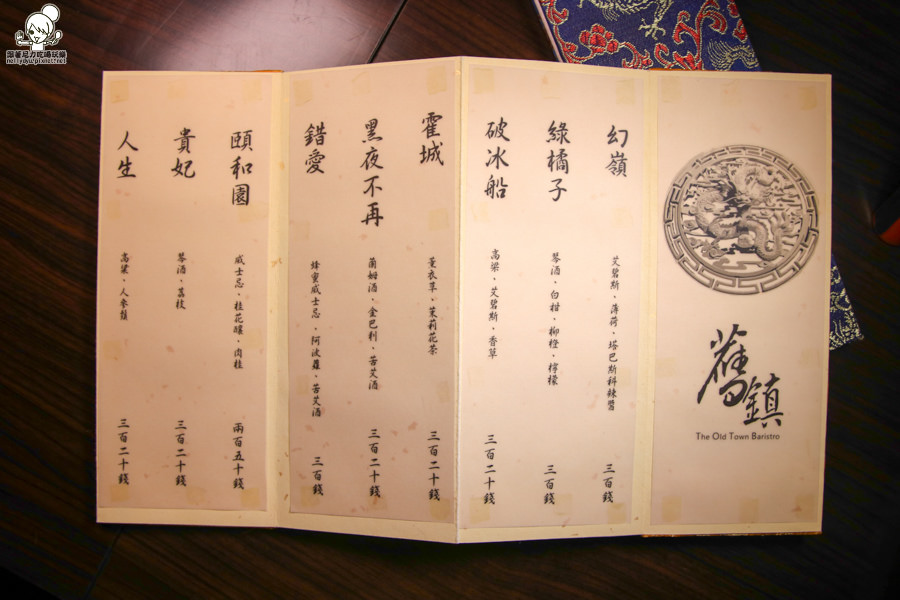 舊鎮
The Old Town Baristro
幻嶺
艾碧斯·薄荷·塔巴斯科辣醬
三百錢
綠橘子
琴酒·白柑·柳橙·檸檬
三百錢
破冰船
高梁·艾碧斯·香草
三百二十錢
霍城
薰衣草·茉莉花茶
三百二十錢
黑夜不再
蘭姆酒·金巴利·苦艾酒
三百二十錢
錯愛
蜂蜜威士忌·阿波羅·苦艾酒
三百錢
頤和園
威士忌·桂花釀·肉桂
兩百五十錢
貴妃
琴酒·荔枝
三百二十錢
人生
高粱·人參鬚
三百二十錢
跟著尼力吃喝玩樂
nellydyu.pixnet.net